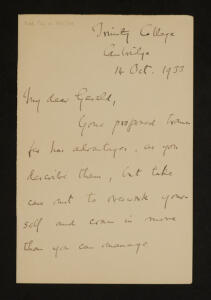 Trinity College
Cambridge
14 Oct. 1933
My dear Gerald,
Your proposed trans
fer has advantages, as you
describe them, but take
care not to overwork your-
self and cram in more
than you can manage